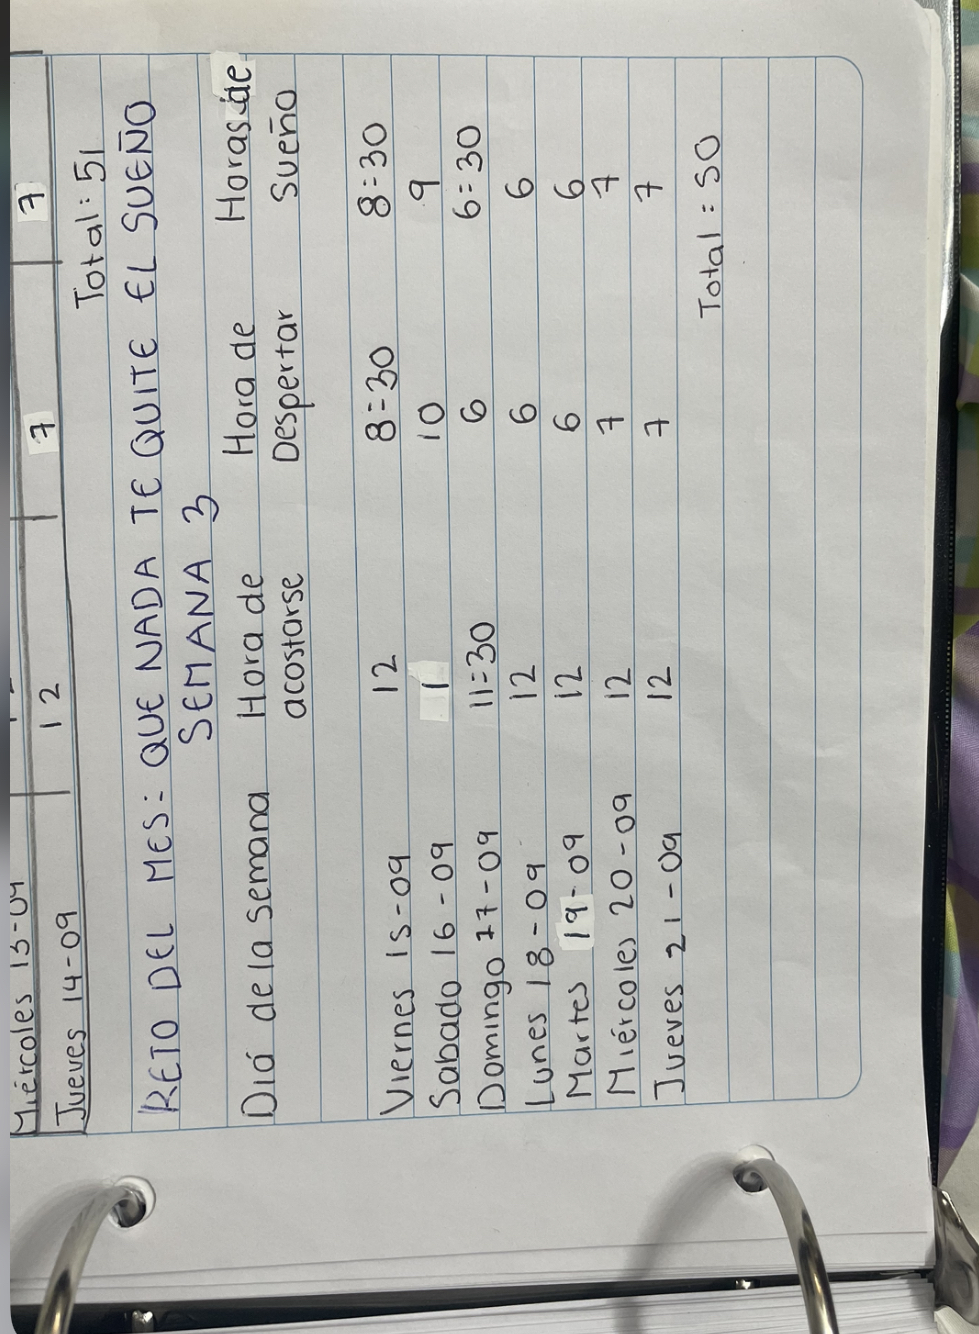 Miércoles 13-09
Jueves 14-09 12 7 7
Total: 51
RETO DEL MES: QUE NADA TE QUITE EL SUEÑO
SEMANA 3
Diá de la semana Hora de acostarse Hora de Despertar Horas de Sueño
Viernes 15-09 12 8:30 8:30
Sabado 16-09 1 10 9
Domingo 17-09 11:30 6 6:30
Lunes 18-09 12 6 6
Martes 19-09 12 6 6
Miércoles 20-09 12 7 7
Jueves 21-09 12 7 7
Total: 50